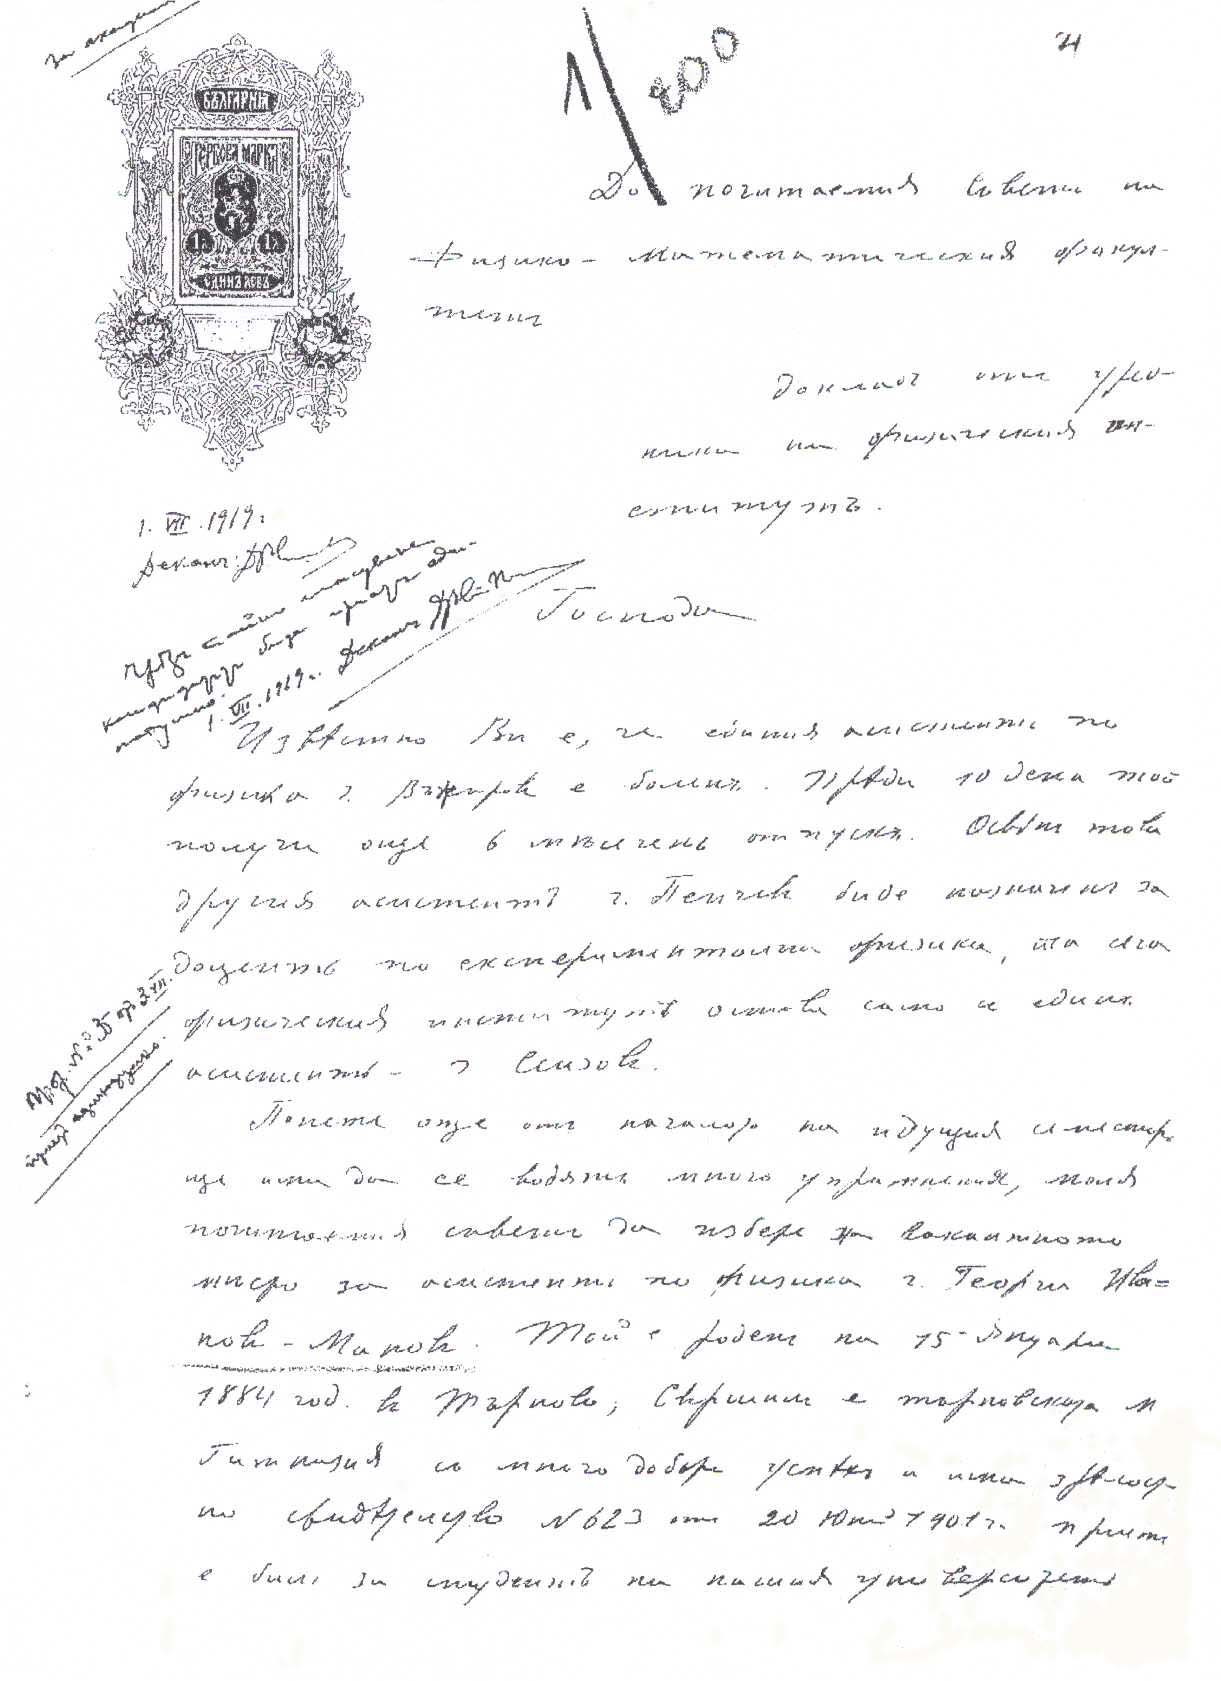 За
1/200
21
БЪЛГАРИЯ
ГЕРБОВА МАРКА
1 ЛЕВЪ 1
ЕДИНЪ ЛЕВЪ
До почитаемия Съветъ на
Физико-Математическия факул-
тетъ
Докладъ отъ уред-
ника на физическия ин-
ститутъ.
1. VII. 1919 г.
Деканъ:
Чрѣзъ тайно гласуване
кандидатътъ биде приетъ еди-
1. VII. 1919 г. Деканъ
Господа
Извѣстно Ви е, че единия асистентъ по
физика г. е боленъ. Прѣди 10 дена той
получи още 6 мѣсеченъ отпускъ. Освѣнъ това
другия асистентъ г. Пенчев биде назначенъ за
доцентъ по експериментална физика, та сега
физическия институтъ остава само съ единъ
асистентъ - г.
Прот. № 35 от 3.VII.
приетъ единодушно.
Понеже още отъ начало на идущия семестъръ
ще има да се водятъ много упражнения, моля
почитаемия съветъ да избере на вакантното
място за асистентъ по физика г. Георги Ива=
новъ - Мановъ. Той е роденъ на 15 Януари
1884 год. въ Търново; Свършилъ е търновската м
Гимназия съ много добъръ успѣхъ и има зрѣлост
но свидѣтелство № 623 отъ 20 Юний 1901 г. Приетъ
е билъ за студентъ на нашия университетъ